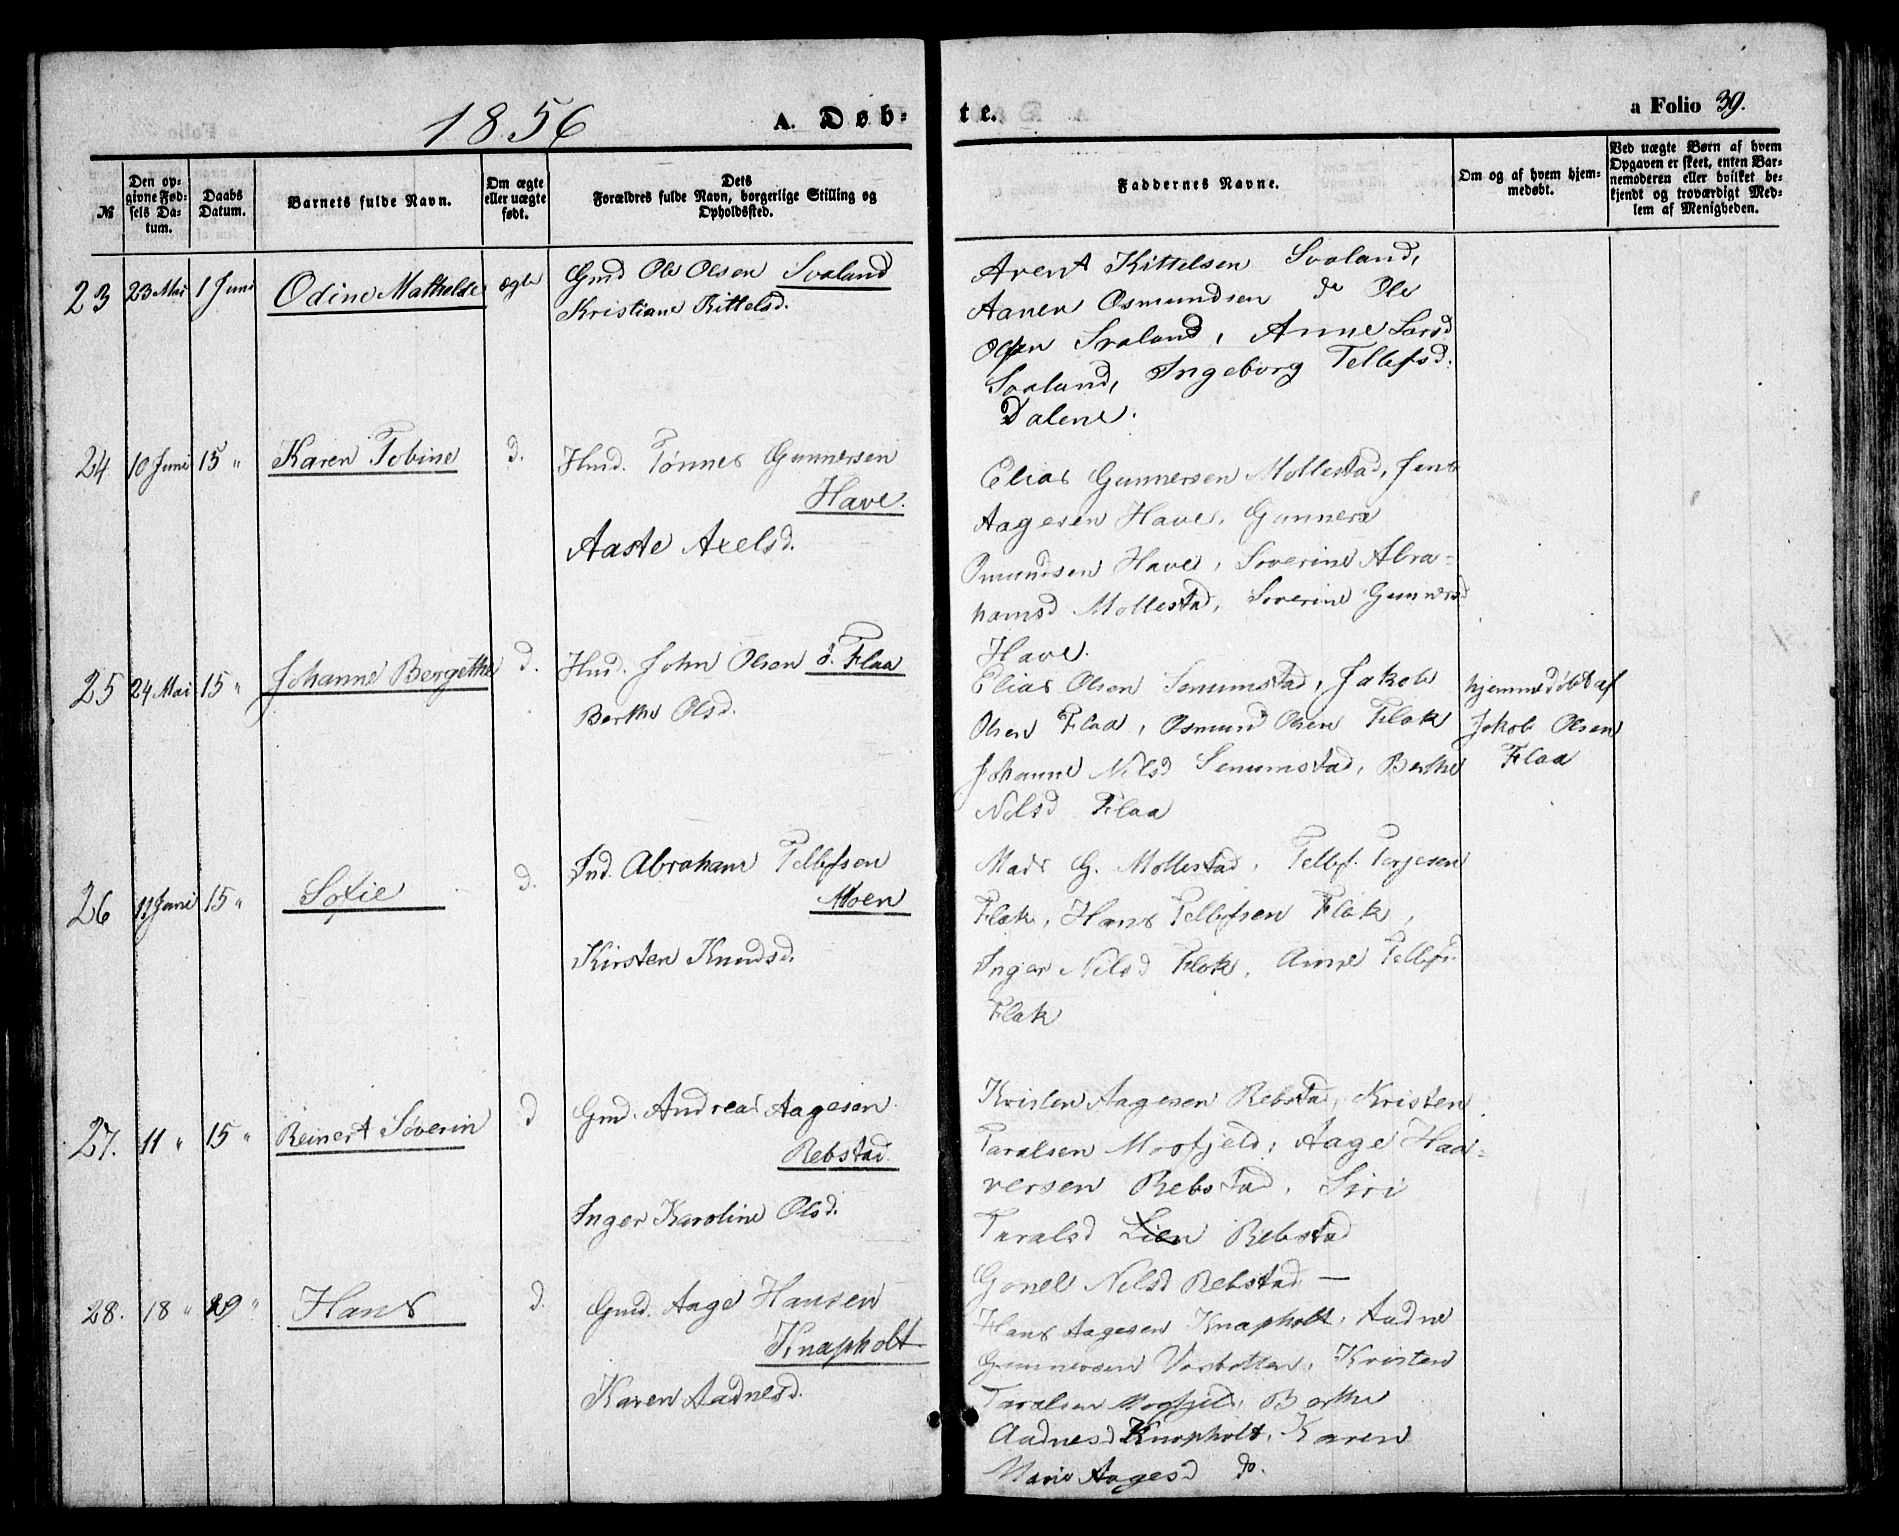 1856
A. Døb-
te.
a Folio 39.
№
Den op-
givne Fød-
sels Da-
tum.
Daabs
Datum.
Barnets fulde Navn.
Om ægte
eller uægte
født.
Dets
Forældres fulde Navn, borgerlige Stilling og
Opholdssted.
Faddernes Navne.
Om og af hvem hjem-
medøbt.
Ved uægte Børn af hvem
Opgaven er skeet, enten Bar-
nemoderen eller hvilket be-
kjendt og troværdigt Med-
lem af Menigheden.
23 23 Mai 1 Juni Odine Mathilde ægte Gmd Ole Olsen Svaland
Kristiane Kittelsd.
Arent Kittelsen Svaland,
Aanen Osmundsen do Ole
Olsen Svaland, Anne Larsd
Svaland, Ingeborg Tellefsd.
Dalene.
24 10 Juni 15 " Karen Tobine d. Hmd. Tønnes Gunnersen
Have.
Aaste Axelsd.
Elias Gunnersen Mollestad, Jens
Aagesen Have, Gunner
Omundsen Have, Severine Abra-
hamsd Mollestad, Severine Gunnersd
Have.
25 24 Mai 15 " Johanne Bergethe d. Hmd. John Olsen ö. Flaa
Berthe Olsd.
Elias Olsen Senumstad, Jakob
Olsen Flaa, Osmund Olsen Flak
Johanne Nilsd Senumstad, Berthe
Nilsd Flaa
hjemmedøbt af
Jakob Olsen
Flaa
26 11 Juni 15 " Sofie d. Ind. Abraham Tellefsen
Moen
Kirsten Knudsd.
Mads G. Mollestad, Tellef Terjesen
Flak, Hans Tellefsen Flak,
Inger Nilsd Flak, Anne Tellefs.
Flak
27. 11 " 15 " Reinert Severin d Gmd. Andreas Aagesen
Rebstad.
Inger Karoline Olsd.
Kristen Aagesen Rebstad, Kristen
Taralsen Mosfjeld, Aage Haa-
versen Rebstad, Siri
Taralsd Lien Rebstad
Gonel Nilsd Rebstad —
28. 18 " 29 " Hans d. Gmd. Aage Hansen
Knapholt
Karen Aadnesd.
Hans Aagesen Knapholt, Aadne
Gunnersen Vasbotten, Kristen
Taralsen Mosfjeld, Berthe
Aadnesd Knapholt, Karen
Marie Aagesd do.